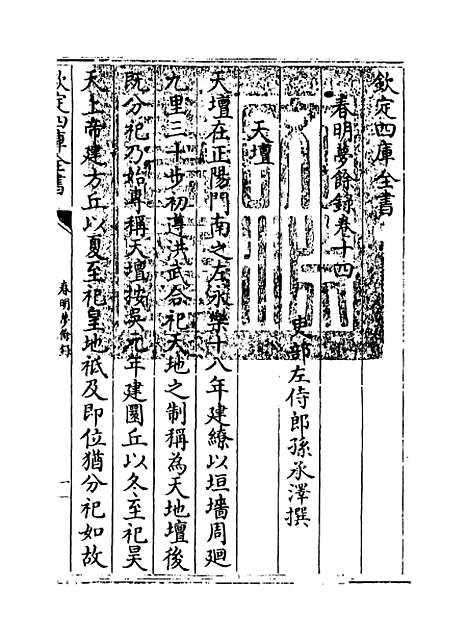 欽定四庫全書
春明夢餘録卷十四
吏部左侍郎孫承澤撰
天壇
天壇在正陽門南之左永樂十八年建繚以垣墻周廻
九里三十步初遵洪武合祀天地之制稱為天地壇後
既分祀乃始専稱天壇按吳元年建圜丘以冬至祀昊
天上帝建方丘以夏至祀皇地祇及即位猶分祀如故
欽定四庫全書
春明夢餘録
一